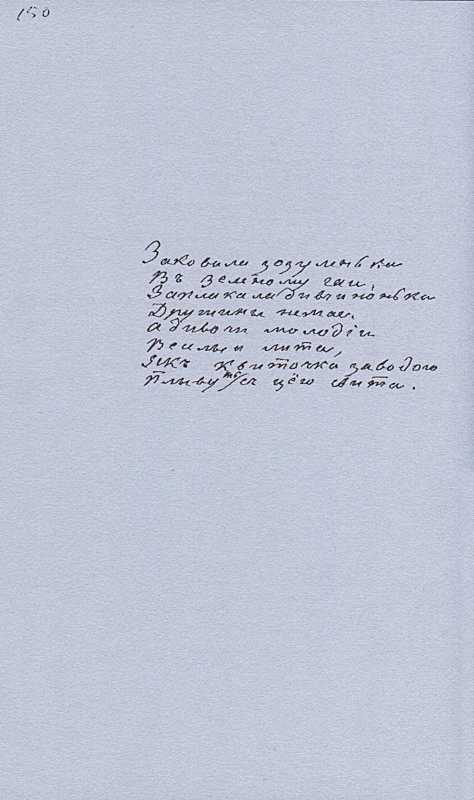 150
Заковала зозуленька
Въ Зеленому гаи,
Заплакала дивчинонька
Дружины немае.
а дивочи молодіи
Веселыи лита,
Якъ квиточка за водою
Пливуть съ цёго свита.